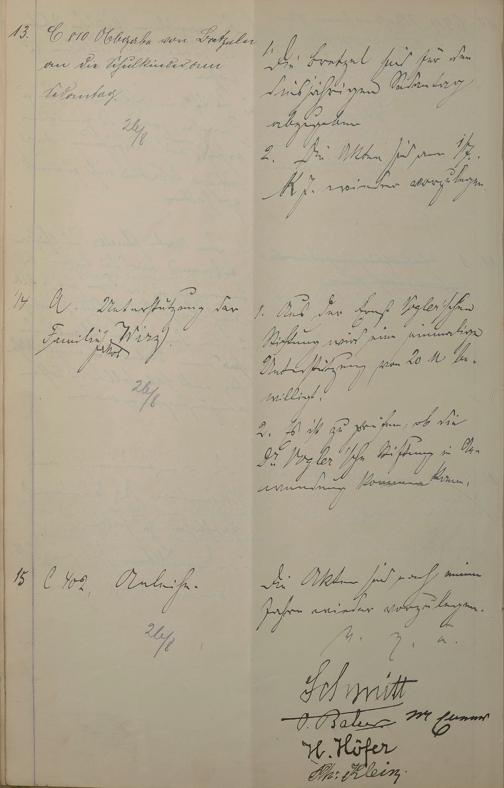 13.
C 810 Abgabe von Bretzeln
an die Schulkinder am
Sedantag.
26/8
1. Die Bretzel sind für den
diesjährigen Sedantag
abzugeben
2. Die Akten sind am 1/7.
K. J. wieder vorzulegen
14
A. Unterstützung der
Familie Jakob Wirz.
26/8
1. Aus der Ernst Vogler'schen
Stiftung wird eine einmalige
Unterstützung von 20 M be-
willigt.
2. Es ist zu prüfen, ob die
Dr. Vogler'sche Stiftung in An-
wendung kommen kann.
15
C 402, Anleihe.
26/8
Die Akten sind nach einem
Jahre wieder vorzulegen.
V. g. u.
Schmitt
H. Höfer
Ph. Klein.